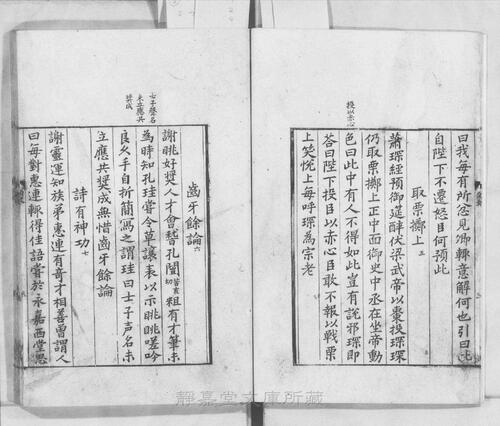 曰我每有所忿見卿輒意解何也引曰此
自陛下不遷怒臣何預此
取栗擲上三
蕭琛經預御筵醉伏梁武帝以棗投琛琛
仍取栗擲上正中面御史中丞在坐帝動
色曰此中有人不得如此豈有說邪琛即
答曰陛下投臣以赤心臣敢不報以戰栗
上笑悅上每呼琛為宗老
投以赤心
齒牙餘論六
謝眺好奬人才會稽孔闓粗有才筆未
為時知孔珪嘗令草讓表以示眺眺嗟吟
良久手自折簡寫之謂珪曰士子声名未
立應共奬成無惜齒牙餘論
士子聲名
未立應共
奬成
詩有神功七
謝靈運知族弟惠連有奇才相善曾謂人
曰每對惠連輒得佳語嘗於永嘉西堂思
靜嘉堂文庫所藏